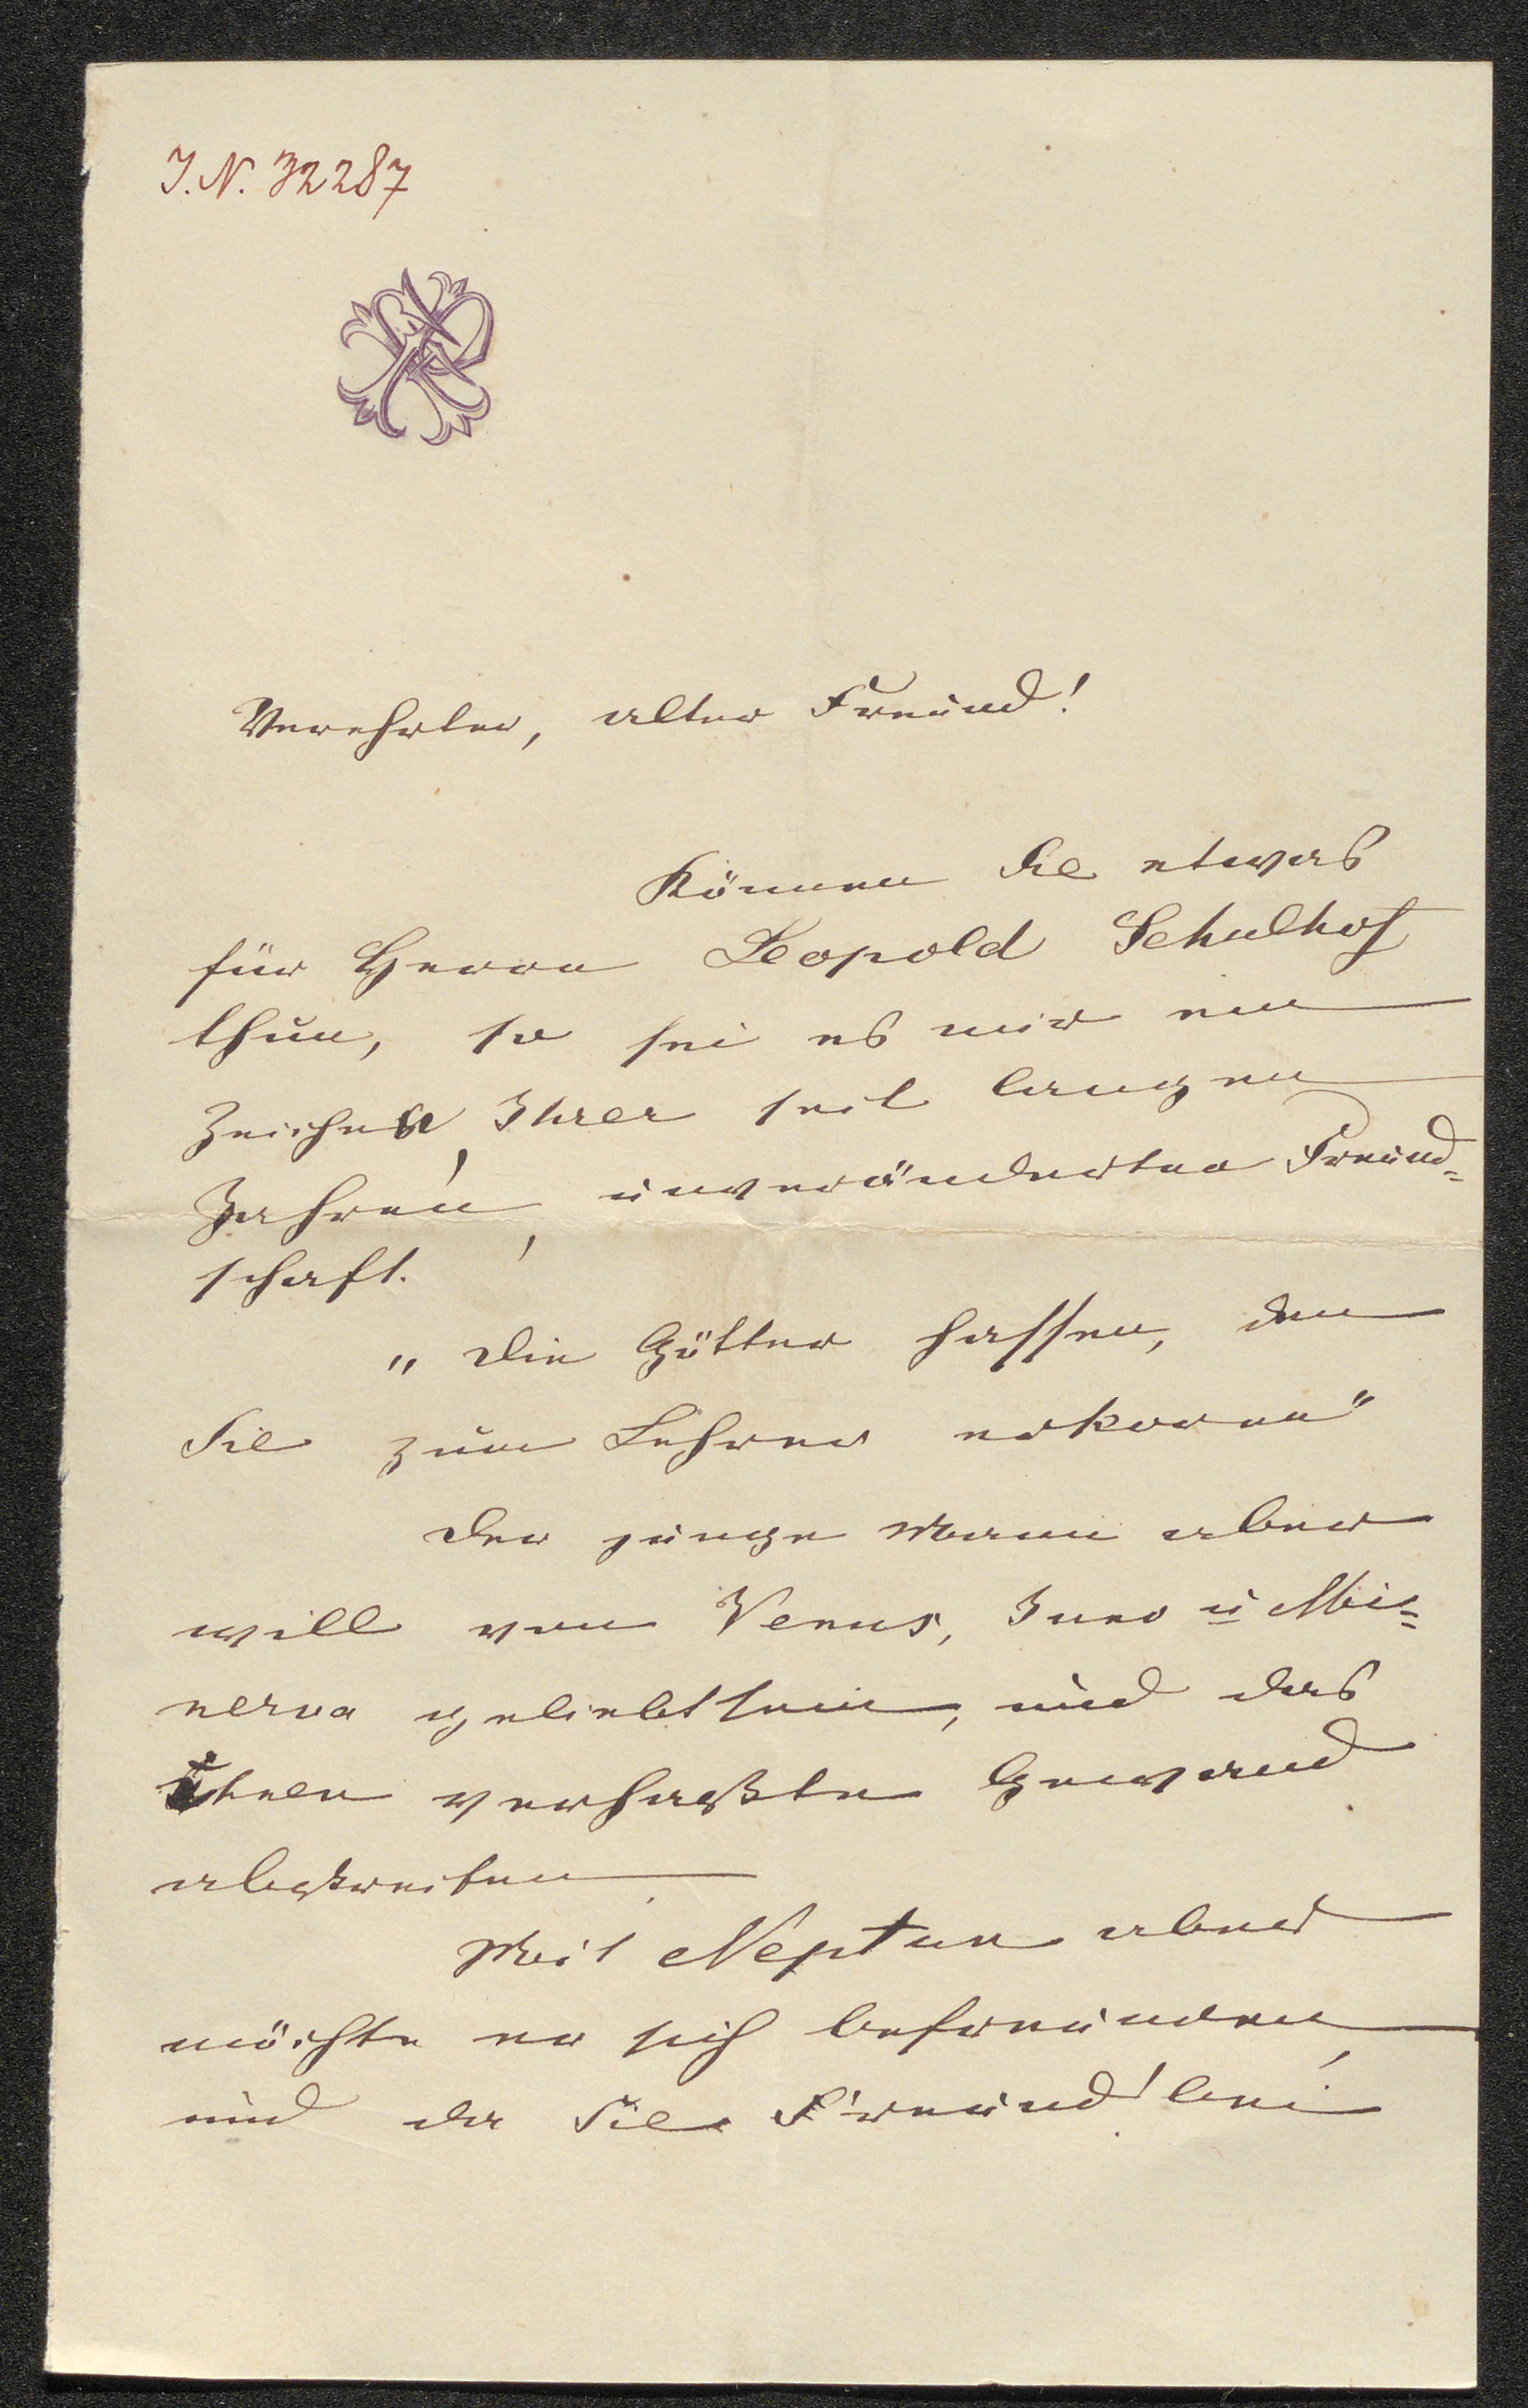 I.N. 32287
Verehrter, alter Freund!
Können Sie etwas
für Herrn Leopold Schulhof
thun, so sei es mir ein
Zeichen Ihrer seit langen
Jahren, unveränderten Freund=
schaft.
"Die Götter hassen, den
Sie zum Lehrer erkoren"
Der junge Mann aber
will von Venus, Juno u Mi=
nerva geliebt sein, und das
ihnen verhaßte Gewand
abstreifen
Mit Neptun aber
möchte er sich befreunden,
und da Sie Freund bei